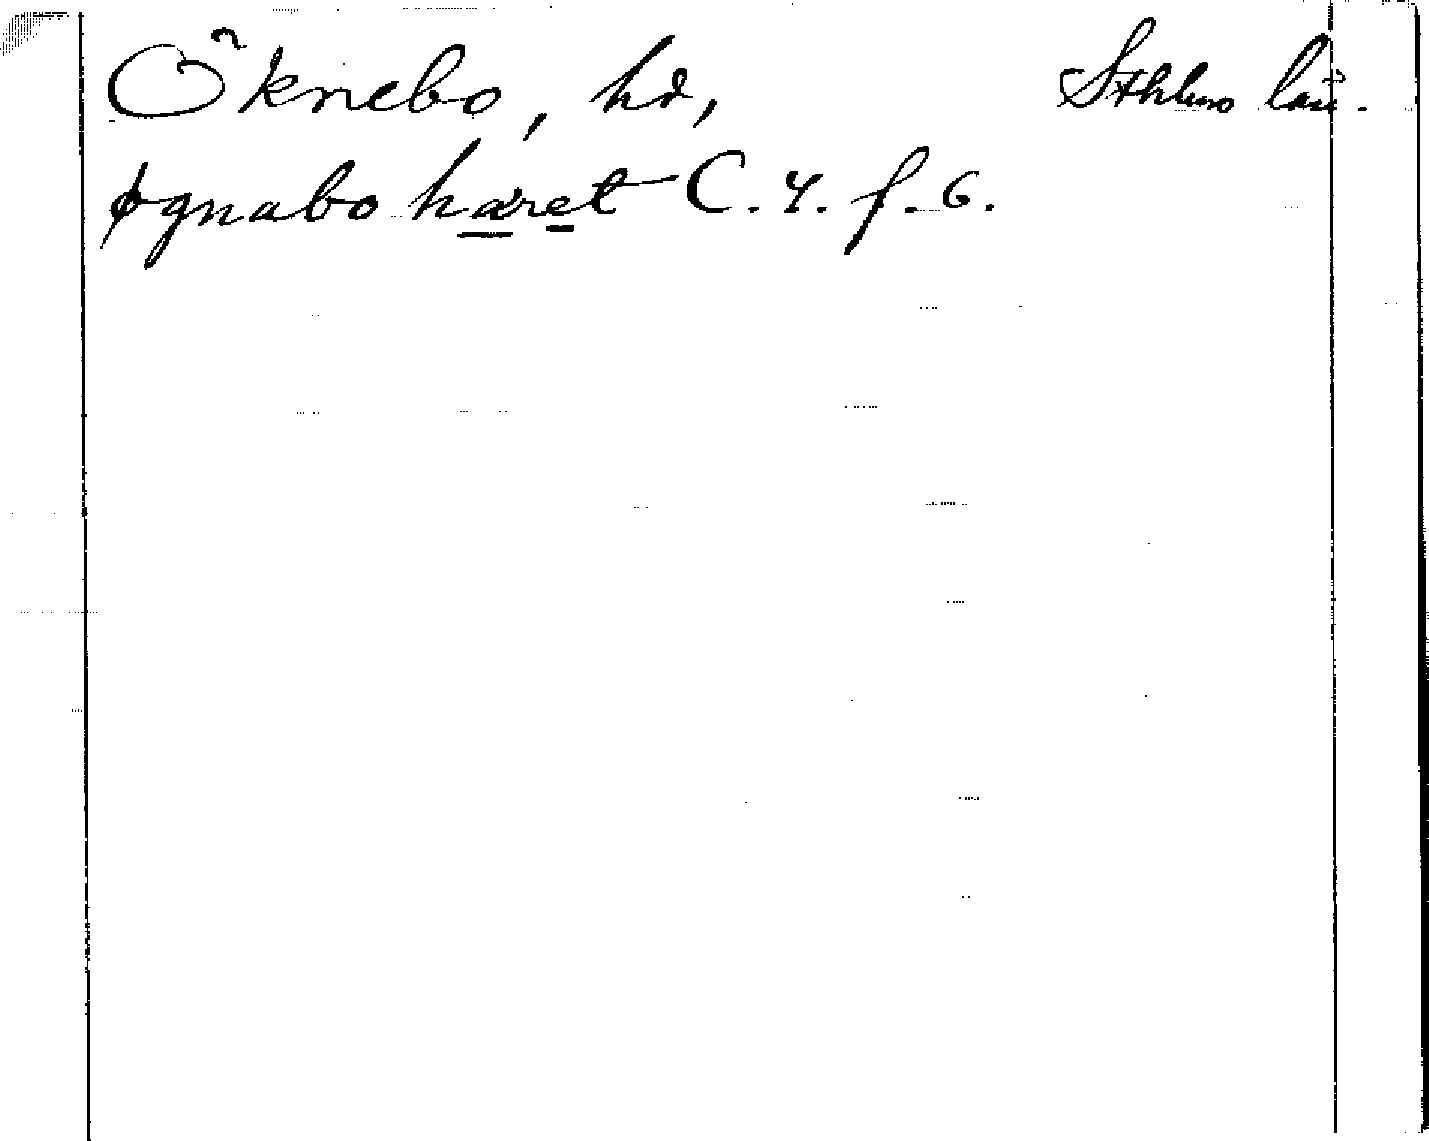 Öknebo, hd, Sthlms län.
øgnabo haret C. 4. f. 6.